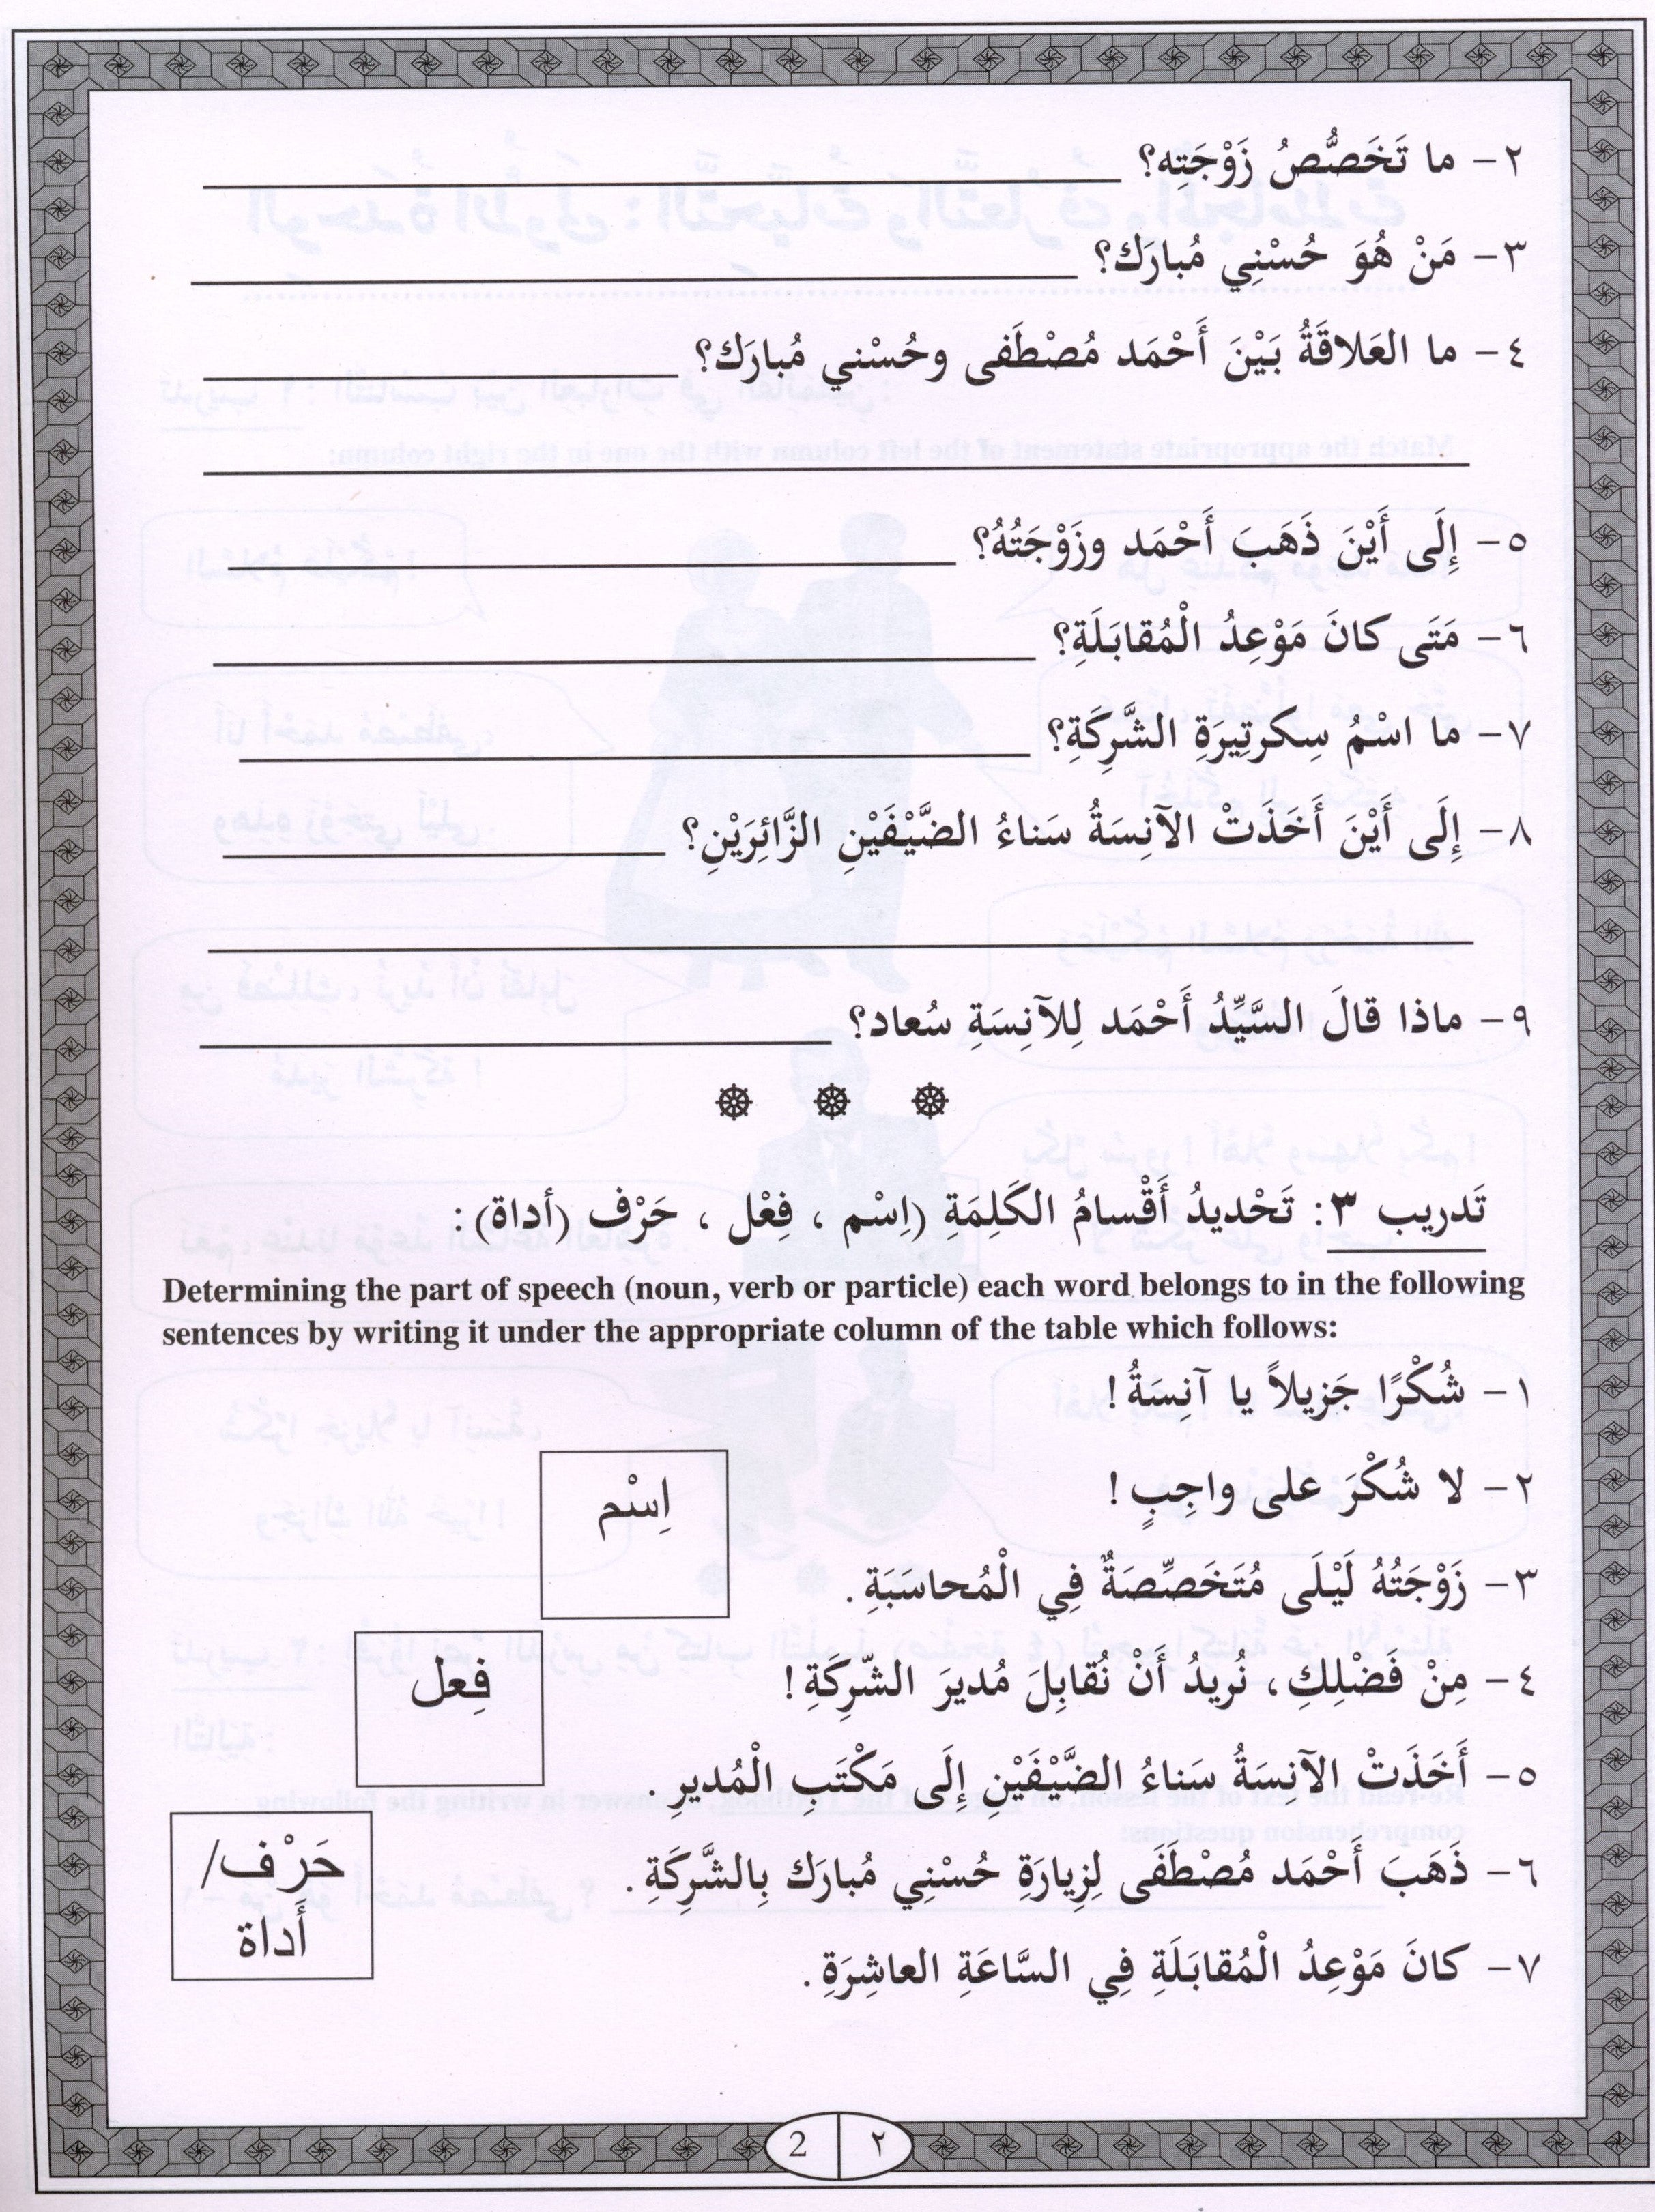 ٢- ما تَخَصُّصُ زَوْجَتِه؟
٣- مَنْ هُوَ حُسْنِي مُبارَك؟
٤- ما العَلاقَةُ بَيْنَ أَحْمَد مُصْطَفى وحُسْني مُبارَك؟
٥- إِلَى أَيْنَ ذَهَبَ أَحْمَد وزَوْجَتُهُ؟
٦- مَتَى كانَ مَوْعِدُ الْمُقابَلَةِ؟
٧- ما اسْمُ سِكرتِيرَةِ الشَّرِكَةِ؟
٨- إِلَى أَيْنَ أَخَذَتْ الآنِسَةُ سَناءُ الضَّيْفَيْنِ الزَّائِرَيْنِ؟
٩- ماذا قالَ السَّيِّدُ أَحْمَد لِلآنِسَةِ سُعاد؟
تَدريب ٣: تَحْديدُ أَقْسامُ الكَلِمَةِ (اِسْم ، فِعْل ، حَرْف (أداة):
Determining the part of speech (noun, verb or particle) each word belongs to in the following
sentences by writing it under the appropriate column of the table which follows:
١- شُكْرًا جَزيلاً يا آنِسَةُ!
٢- لا شُكْرَ على واجِبٍ!
اِسْم
٣- زَوْجَتُهُ لَيْلَى مُتَخَصِّصَةٌ فِي الْمُحاسَبَةِ.
٤- مِنْ فَضْلِكِ، نُريدُ أَنْ نُقابِلَ مُديرَ الشّرِكَةِ!
فِعل
٥- أَخَذَتْ الآنِسَةُ سَناءُ الضَّيْفَيْنِ إِلَى مَكْتَبِ الْمُديرِ.
٦- ذَهَبَ أَحْمَد مُصْطَفَى لِزِيارَةِ حُسْنِي مُبارَك بِالشَّرِكَةِ.
حَرْف/
أَداة
٧- كانَ مَوْعِدُ الْمُقابَلَةِ فِي السَّاعَةِ العاشِرَةِ.
2 ٢